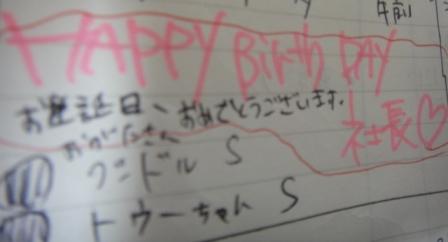 午前
HAPPY BirthDAY
お誕生日、おめでとうございます。
社長♡
グードル S
トゥーちゃん S